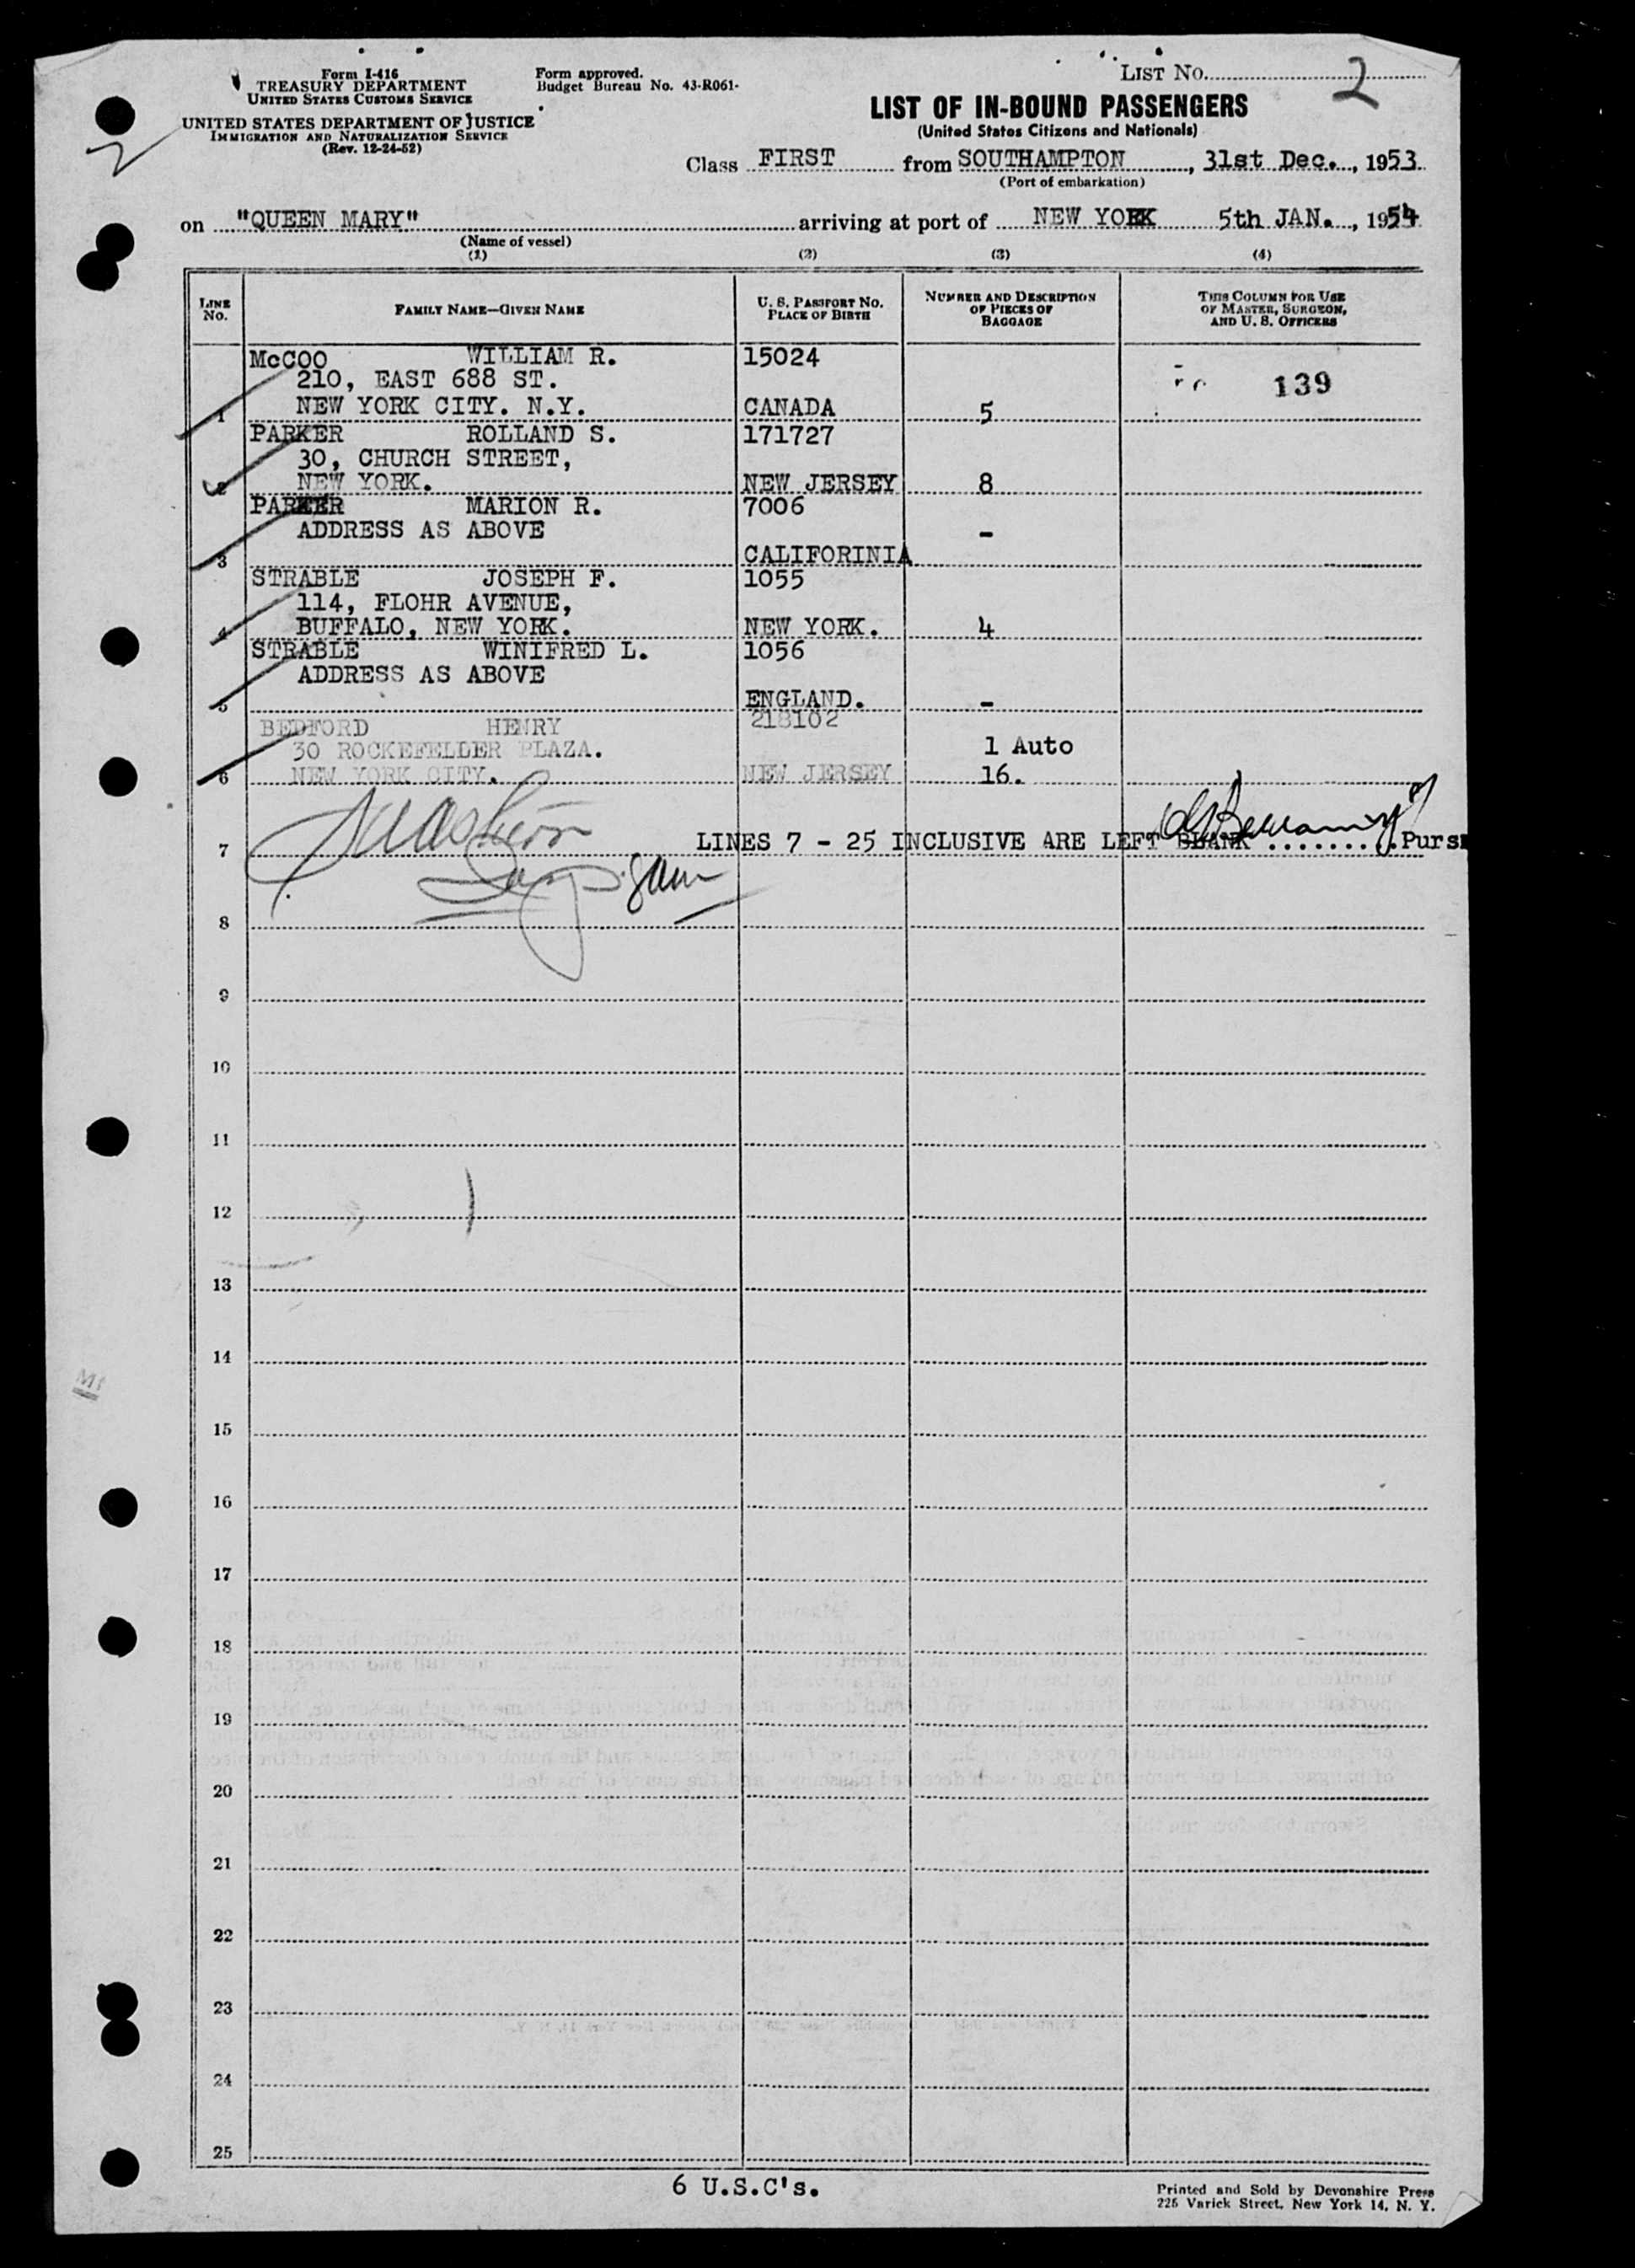 Form I-416
TREASURY DEPARTMENT
UNITED STATES CUSTOMS SERVICE
UNITED STATES DEPARTMENT OF JUSTICE
IMMIGRATION AND NATURALIZATION SERVICE
(Rev. 12-24-52)
Form approved.
Budget Bureau No. 43-R061-
LIST No. 2
LIST OF IN-BOUND PASSENGERS
(United States Citizens and Nationals)
Class FIRST from SOUTHAMPTON, 31st Dec., 1953
(Port of embarkation)
on "QUEEN MARY" arriving at port of NEW YORK 5th JAN., 1954
(Name of vessel)
(1) (2) (3) (4)
LINE No. FAMILY NAME—GIVEN NAME U. S. PASSPORT No. PLACE OF BIRTH NUMBER AND DESCRIPTION OF PIECES OF BAGGAGE THIS COLUMN FOR USE OF MASTER, SURGEON, AND U. S. OFFICERS
McCOO WILLIAM R. 15024
210, EAST 688 ST. 139
1 NEW YORK CITY. N.Y. CANADA 5
PARKER ROLLAND S. 171727
30, CHURCH STREET,
2 NEW YORK. NEW JERSEY 8
PARKER MARION R. 7006
ADDRESS AS ABOVE -
3 CALIFORINIA
STRABLE JOSEPH F. 1055
114, FLOHR AVENUE,
4 BUFFALO, NEW YORK. NEW YORK. 4
STRABLE WINIFRED L. 1056
ADDRESS AS ABOVE
5 ENGLAND. -
BEDFORD HENRY 218102
30 ROCKEFELLER PLAZA. 1 Auto
6 NEW YORK CITY. NEW JERSEY 16.
7 LINES 7 - 25 INCLUSIVE ARE LEFT BLANK ..........Purs
8
9
10
11
12
13
14
15
16
17
18
19
20
21
22
23
24
25
6 U.S.C's.
Printed and Sold by Devonshire Press
225 Varick Street, New York 14, N. Y.